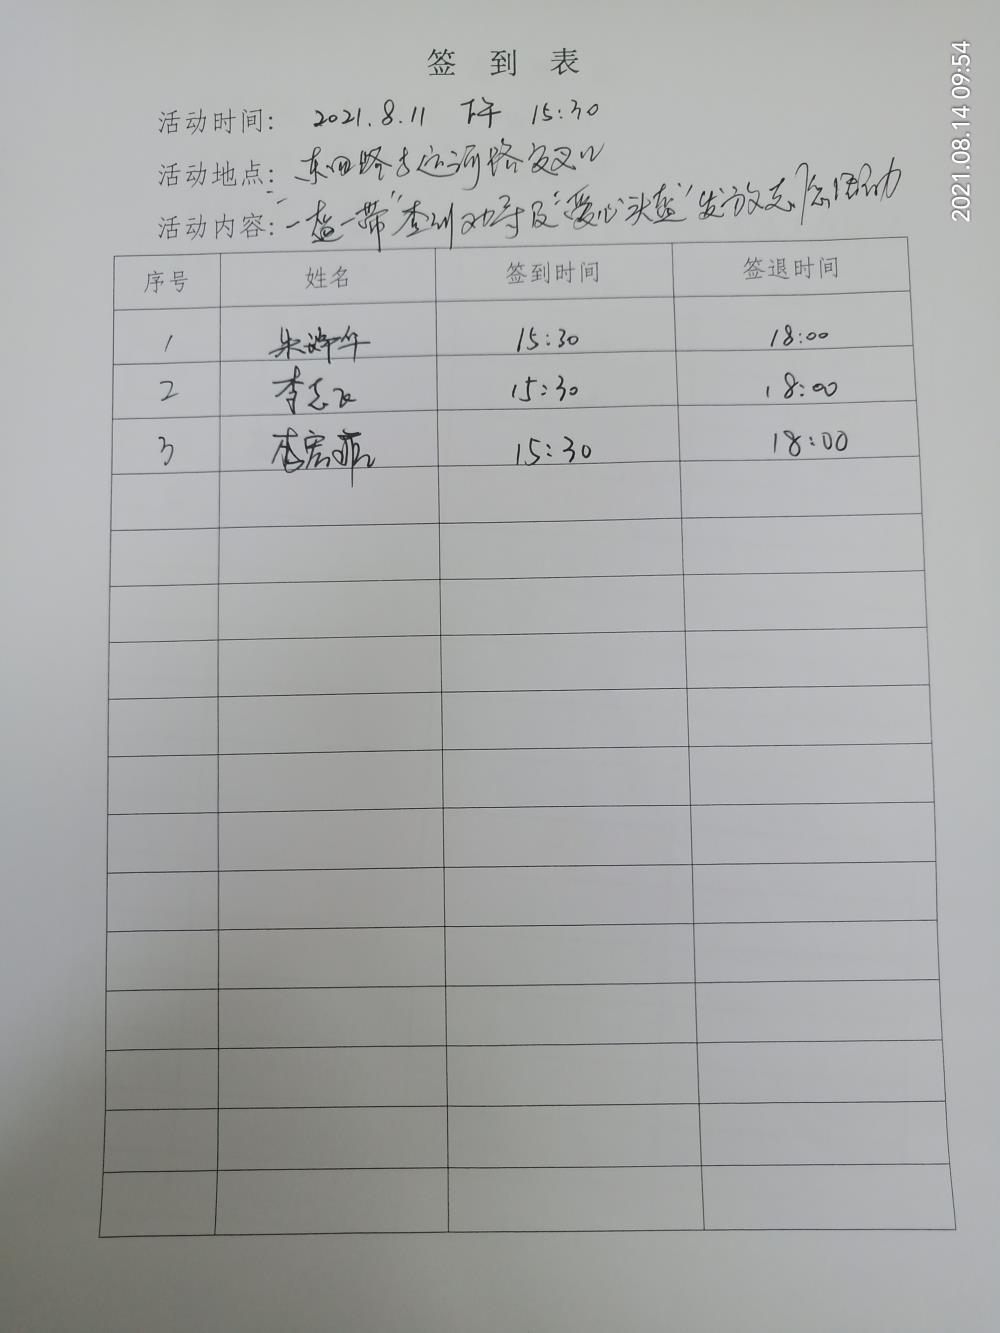 签 到 表
活动时间: 2021.8.11 下午 15:30
活动地点: 东四路与运河路交叉口
活动内容: "一盔一带"查纠劝导及"爱心头盔"发放志愿活动
序号 姓名 签到时间 签退时间
1 朱 华 15:30 18:00
2 李志飞 15:30 18:00
3 李宏 15:30 18:00
2021.08.14 09:54